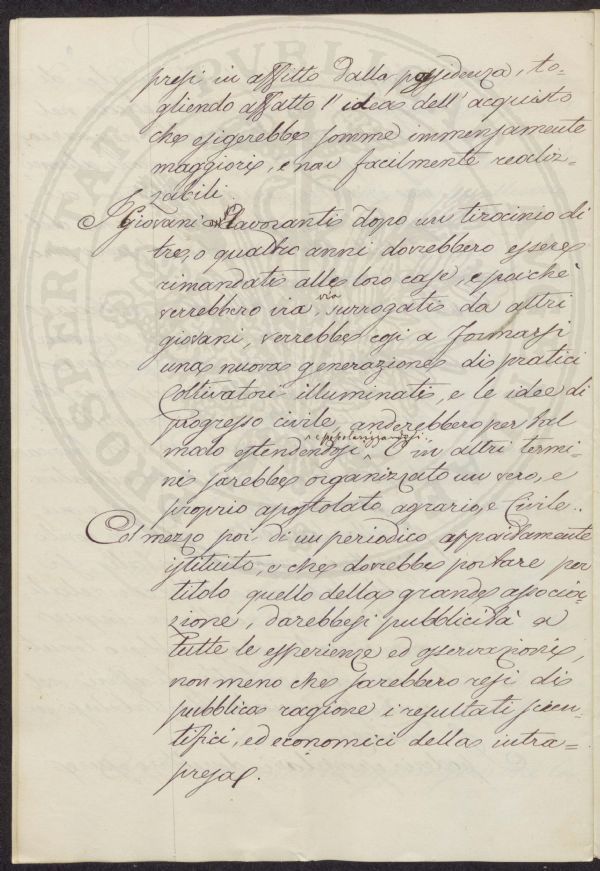 presi in affitto dalla possidenza, to=
gliendo affatto l'idea dell'acquisto
che esigerebbe somme immensamente
maggiori, e non facilmente realiz=
zabili.
I giovani lavoranti dopo un tirocinio di
tre, o quattro anni dovrebbero essere
rimandati alle loro case, e poichè
verrebbero via via, surrogati da altri
giovani, verrebbe così a formarsi
una nuova generazione di pratici
coltivatori illuminati, e le idee di
progresso civile anderebbero per tal
modo estendendosi e popolarizzandosi. in altri termi=
ni sarebbe organizzato un vero, e
proprio apostolato agrario, e Civile.
Col mezzo poi di un periodico appositamente
istituito, e che dovrebbe portare per
titolo quello della grande associa=
zione, darebbesi pubblicità a
tutte le esperienze ed osservazioni,
non meno che sarebbero resi di
pubblica ragione i resultati scien=
tifici, ed economici della intra=
presa.
PROSPERITATI PVBLICAE